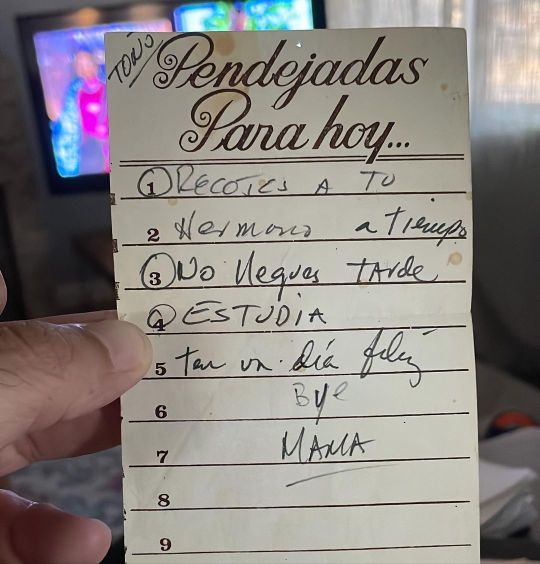 TOÑO
Pendejadas
Para hoy...
1 RECOJES A TU
2 Hermano a tiempo
3 NO llegues TARde
4 ESTUDIA
5 ten un día feliz
6 Bye
7 MAMA
8
9